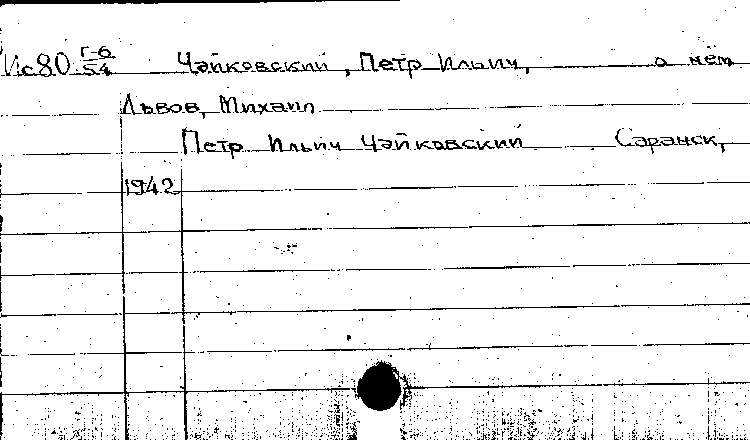 Ис80 Г-6/54 Чайковский, Петр Ильич, о нём
Львов, Михаил
Петр Ильич Чайковский Саранск,
1942